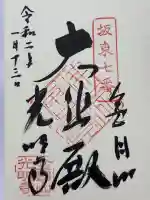 坂東七番
金目山
大悲殿
光明寺
令和二年
一月十三日